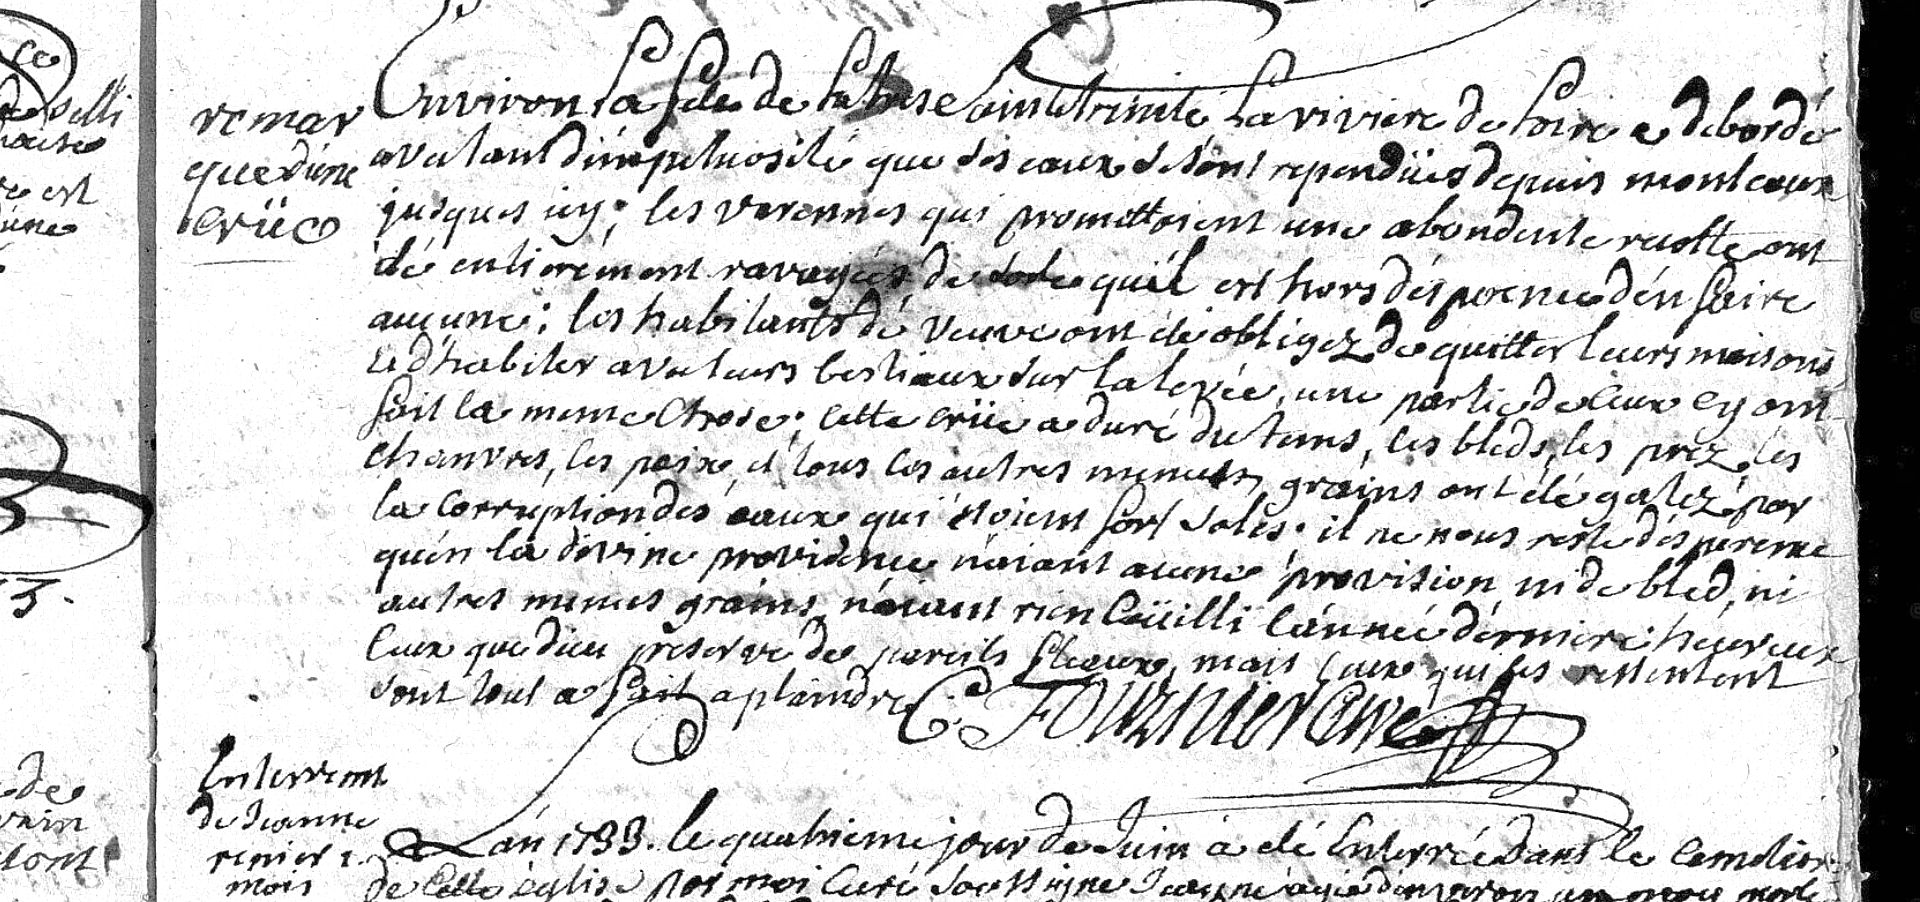 remar
que d'une
crüe
Environ la feste de la tres Sainte trinité La riviere de Loire a debordé
avec tant d'impetuosité que ses eaux se sont rependües depuis monteaux
jusques icy; les varennes qui promettoient une abondente recolte ont
été entierement ravagées de sorte qu'il est hors d'esperence d'en faire
aucune; les habitants de Veuve ont été obligez de quitter leurs maisons
et d'habiter avec leurs bestiaux sur la levée, une partie de ceux cy ont
fait la meme chose; cette crüe a duré du tems, les bleds, les prez, les
chanvres, les poix, et tous les autres menus grains ont été gatez par
la corruption des eaux qui étoient fort sales. il ne nous reste d'esperence
qu'en la divine providence n'aiant aucune provision ni de bled, ni
autres menus grains, n'aiant rien ceüilli l'année derniere: heureux
ceux que dieu preserve de pareils fleaux, mais ceux qui les ressentent
sont tout a fait a plaindre C. Fournier Curé
Enterrement
de Jeanne
renier 1.
mois
L'an 1733. le quatrieme jour de Juin a été Enterrée dans le Cemetiere
de Cette église par moi Curé Soussigné agée d'environ un mois